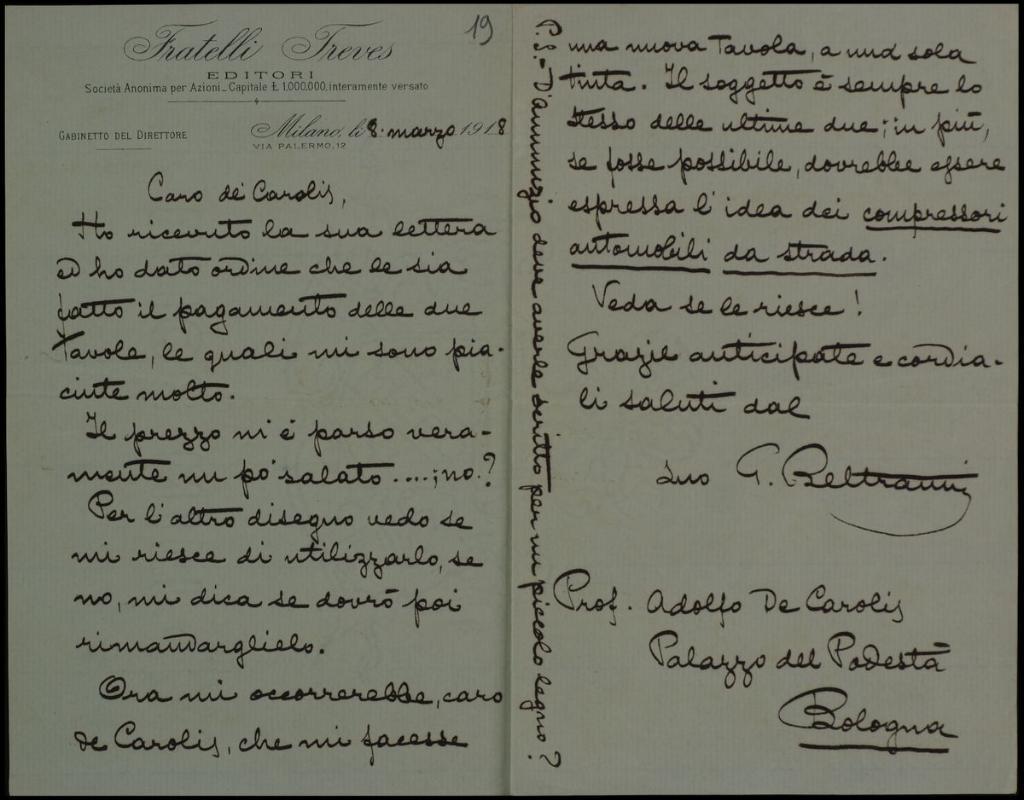 19
Fratelli Treves
EDITORI
Società Anonima per Azioni - Capitale Ł 1,000,000, interamente versato
GABINETTO DEL DIRETTORE
Milano, li 8. marzo 1918
VIA PALERMO, 12
Caro de Carolis,
Ho ricevuto la sua lettera
ed ho dato ordine che le sia
fatto il pagamento delle due
Tavole, le quali mi sono pia-
ciute molto.
Il prezzo m'è parso vera-
mente un po' salato....; no?
Per l'altro disegno vedo se
mi riesce di utilizzarlo, se
no, mi dica se dovrò poi
rimandarglielo.
Ora mi occorrerebbe, caro
de Carolis, che mi facesse
una nuova Tavola, a una sola
tinta. Il soggetto è sempre lo
stesso delle ultime due; in più,
se fosse possibile, dovrebbe essere
espressa l'idea dei compressori
automobili da strada.
Veda se le riesce!
Grazie anticipate e cordia-
li saluti dal
suo G. Beltrami
Prof. Adolfo De Carolis
Palazzo del Podestà
Bologna
P.S. - D'Annunzio deve averle scritto per un piccolo legno?